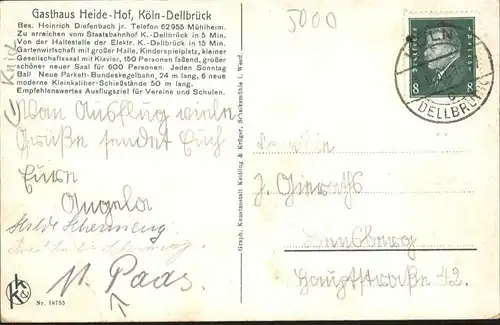 Gasthaus Heide-Hof, Köln-Dellbrück
Bes. Heinrich Diefenbach jr. Telefon 62955 Mühlheim.
Zu erreichen vom Staatsbahnhof K.-Dellbrück in 5 Min.
Von der Haltestelle der Elektr. K.-Dellbrück in 15 Min.
Gartenwirtschaft mit großer Halle, Kinderspielplatz, kleiner
Gesellschaftssaal mit Klavier, 150 Personen faßend, großer
schöner neuer Saal für 600 Personen. Jeden Sonntag
Ball Neue Parkett-Bundeskegelbahn, 24 m lang, 6 neue
moderne Kleinkaliber-Schießstände 50 m lang
Empfehlenswertes Ausflugsziel für Vereine und Schulen.
Vom Ausflug viele
Grüße sendet Euch
Eure
Angela
Hilde
M. Paas
Nr. 18755
Graph. Kunstanstalt Kettling & Krüger, Schalksmühle i. Westf.
5000
8 8
DELLBRÜCK
Familie
J. Gieraths
Bensberg
Hauptstraße 42.